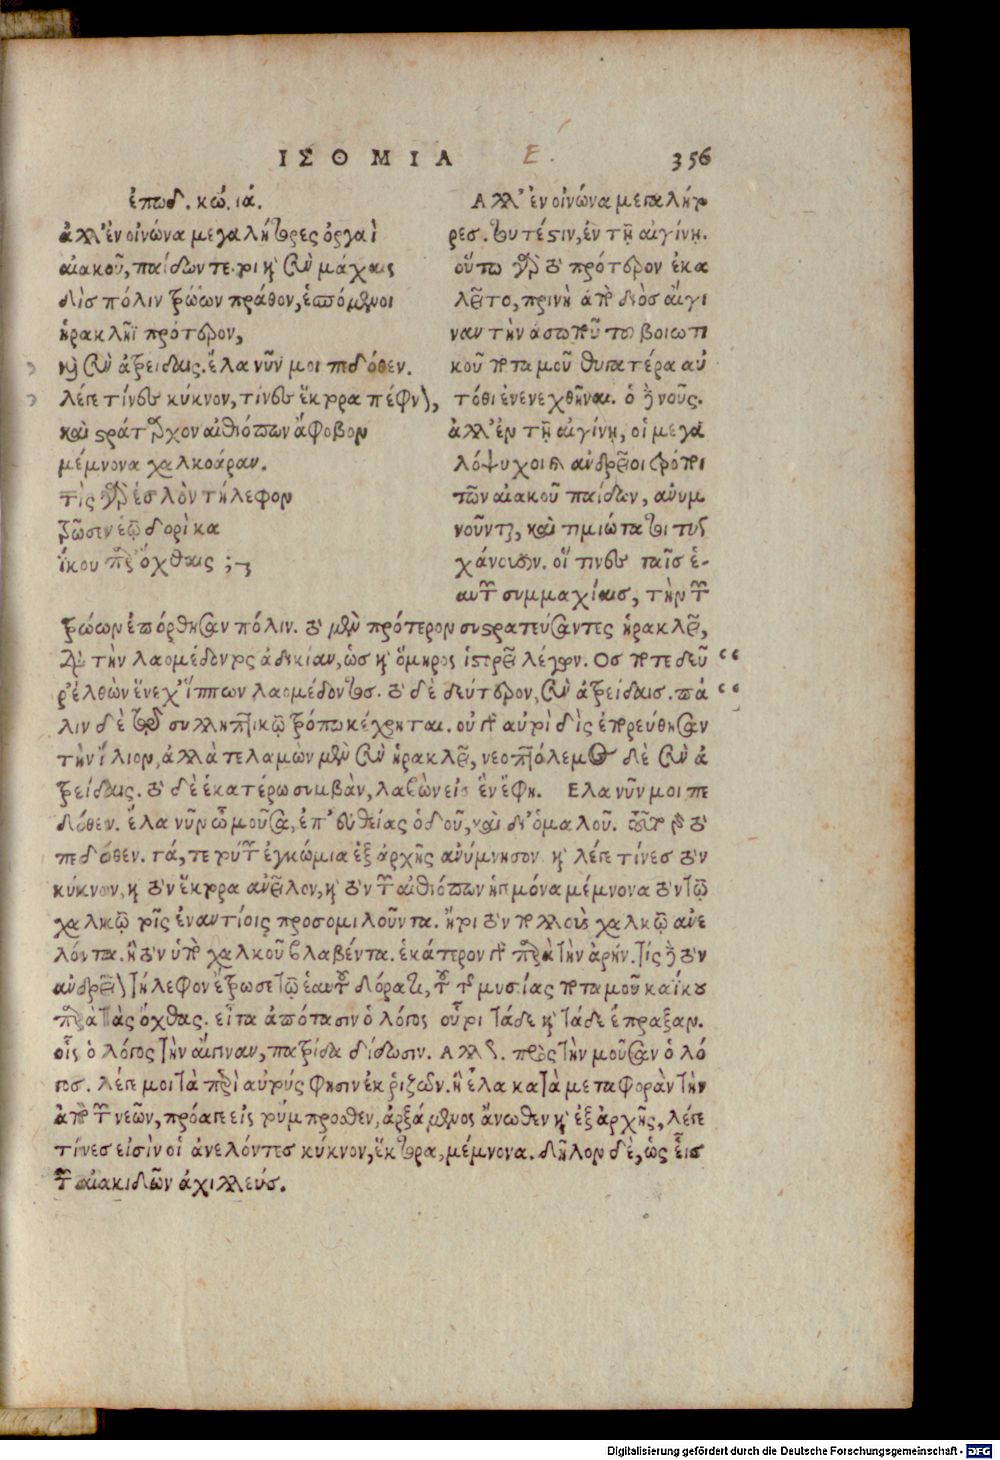 ΙΣΘΜΙΑ Ε. 356
ἐπωδ. κώ. ιά.
ἀλλ' ἐν οἰνώνα μεγαλήτορες ὀργαὶ
αἰακοῦ, παίδων τε. τοὶ καὶ σὺν μάχαις
δὶς πόλιν τρώων πράθον, ἑσπόμενοι
ἡρακλῆϊ πρότερον,
καὶ σὺν ἀτρείδαις. ἔλα νῦν μοι πεδόθεν.
λέγε τίνες κύκνον, τίνες ἕκτορα πέφνον,
καὶ στράταρχον αἰθιόπων ἄφοβον
μέμνονα χαλκοάραν.
τίς γὰρ ἐσλὸν τήλεφον
τρῶσεν ἑῷ δορὶ κα
ΐκου παρ' ὄχθαις ;
Αλλ' ἐν οἰνώνα μεγαλήτο
ρες. τουτέστιν, ἐν τῇ αἰγίνῃ.
οὕτω γὰρ τὸ πρότερον ἐκα
λεῖτο, πρινὴ ἀπὸ διὸς αἴγι
ναν τὴν ἀσωποῦ τοῦ βοιωτι
κοῦ ποταμοῦ θυγατέρα αὐ
τόθι ἐνενεχθῆναι. ὁ δὲ νοῦς.
ἀλλ' ἐν τῇ αἰγίνῃ, οἱ μεγα
λόψυχοι καὶ ἀνδρεῖοι τρόποι
τῶν αἰακοῦ παίδων, ἀνυμ
νοῦνται, καὶ τιμιώτατοι τυγ
χάνουσιν. οἵ τινες ταῖς ἑ-
αυτῶν συμμαχίαις, τὴν τῶν
τρώων ἐπόρθησαν πόλιν. τὸ μὲν πρότερον συστρατεύσαντες ἡρακλεῖ,
διὰ τὴν λαομέδοντος ἀδικίαν, ὡς καὶ ὅμηρος ἱστορεῖ λέγων. Ος ποτε δεῦ
ρ' ἐλθὼν ἕνεχ' ἵππων λαομέδοντος. τὸ δὲ δεύτερον, σὺν ἀτρείδαις. πά
λιν δὲ τῷ συλληπτικῷ τρόπῳ κέχρηται. οὐ γὰρ αὐτοὶ δὶς ἐπορεύθησαν
τὴν ἴλιον, ἀλλὰ τελαμὼν μὲν σὺν ἡρακλεῖ, νεοπτόλεμος δὲ σὺν ἀ
τρείδαις. τὸ δὲ ἑκατέρῳ συμβὰν, λαβὼν εἰς ἓν ἔφη. Ελα νῦν μοι πε
δόθεν. ἔλα νῦν ὦ μοῦσα, ἐπ' εὐθείας ὁδοῦ, καὶ δι' ὁμαλοῦ. τοῦτο γὰρ τὸ
πεδόθεν. τά, τε τούτων ἐγκώμια ἐξ ἀρχῆς ἀνύμνησον καὶ λέγε τίνες τὸν
κύκνον, καὶ τὸν ἕκτορα ἀνεῖλον, καὶ τὸν τῶν αἰθιόπων ἡγεμόνα μέμνονα τὸν τῷ
χαλκῷ τοῖς ἐναντίοις προσομιλοῦντα. ἤτοι τὸν πολλοὺς χαλκῷ ἀνε
λόντα. ἢ τὸν ὑπὸ χαλκοῦ βλαβέντα. ἑκάτερον γὰρ παρὰ τὴν ἀρήν. τίς δὲ τὸν
ἀνδρεῖον τήλεφον ἔτρωσε τῷ ἑαυτοῦ δόρατι, τοῦ τῆς μυσίας ποταμοῦ καΐκου
παρὰ τὰς ὄχθας. εἶτα ἀπότασιν ὁ λόγος οὗτοι τάδε καὶ τάδε ἔπραξαν.
οἷς ὁ λόγος τὴν αἴγιναν, πατρίδα δίδωσιν. Αλλως. πρὸς τὴν μοῦσαν ὁ λό
γος. λέγε μοι τὰ περὶ αὐτούς φησιν ἐκ ῥιζῶν. ἢ ἔλα κατὰ μεταφορὰν τὴν
ἀπὸ τῶν νεῶν, πρόαγε εἰς τοὔμπροσθεν, ἀρξάμενος ἄνωθεν καὶ ἐξ ἀρχῆς, λέγε
τίνες εἰσὶν οἱ ἀνελόντες κύκνον, ἕκτορα, μέμνονα. δῆλον δὲ, ὡς εἷς
τῶν αἰακιδῶν ἀχιλλεύς.
Digitalisierung gefördert durch die Deutsche Forschungsgemeinschaft - DFG